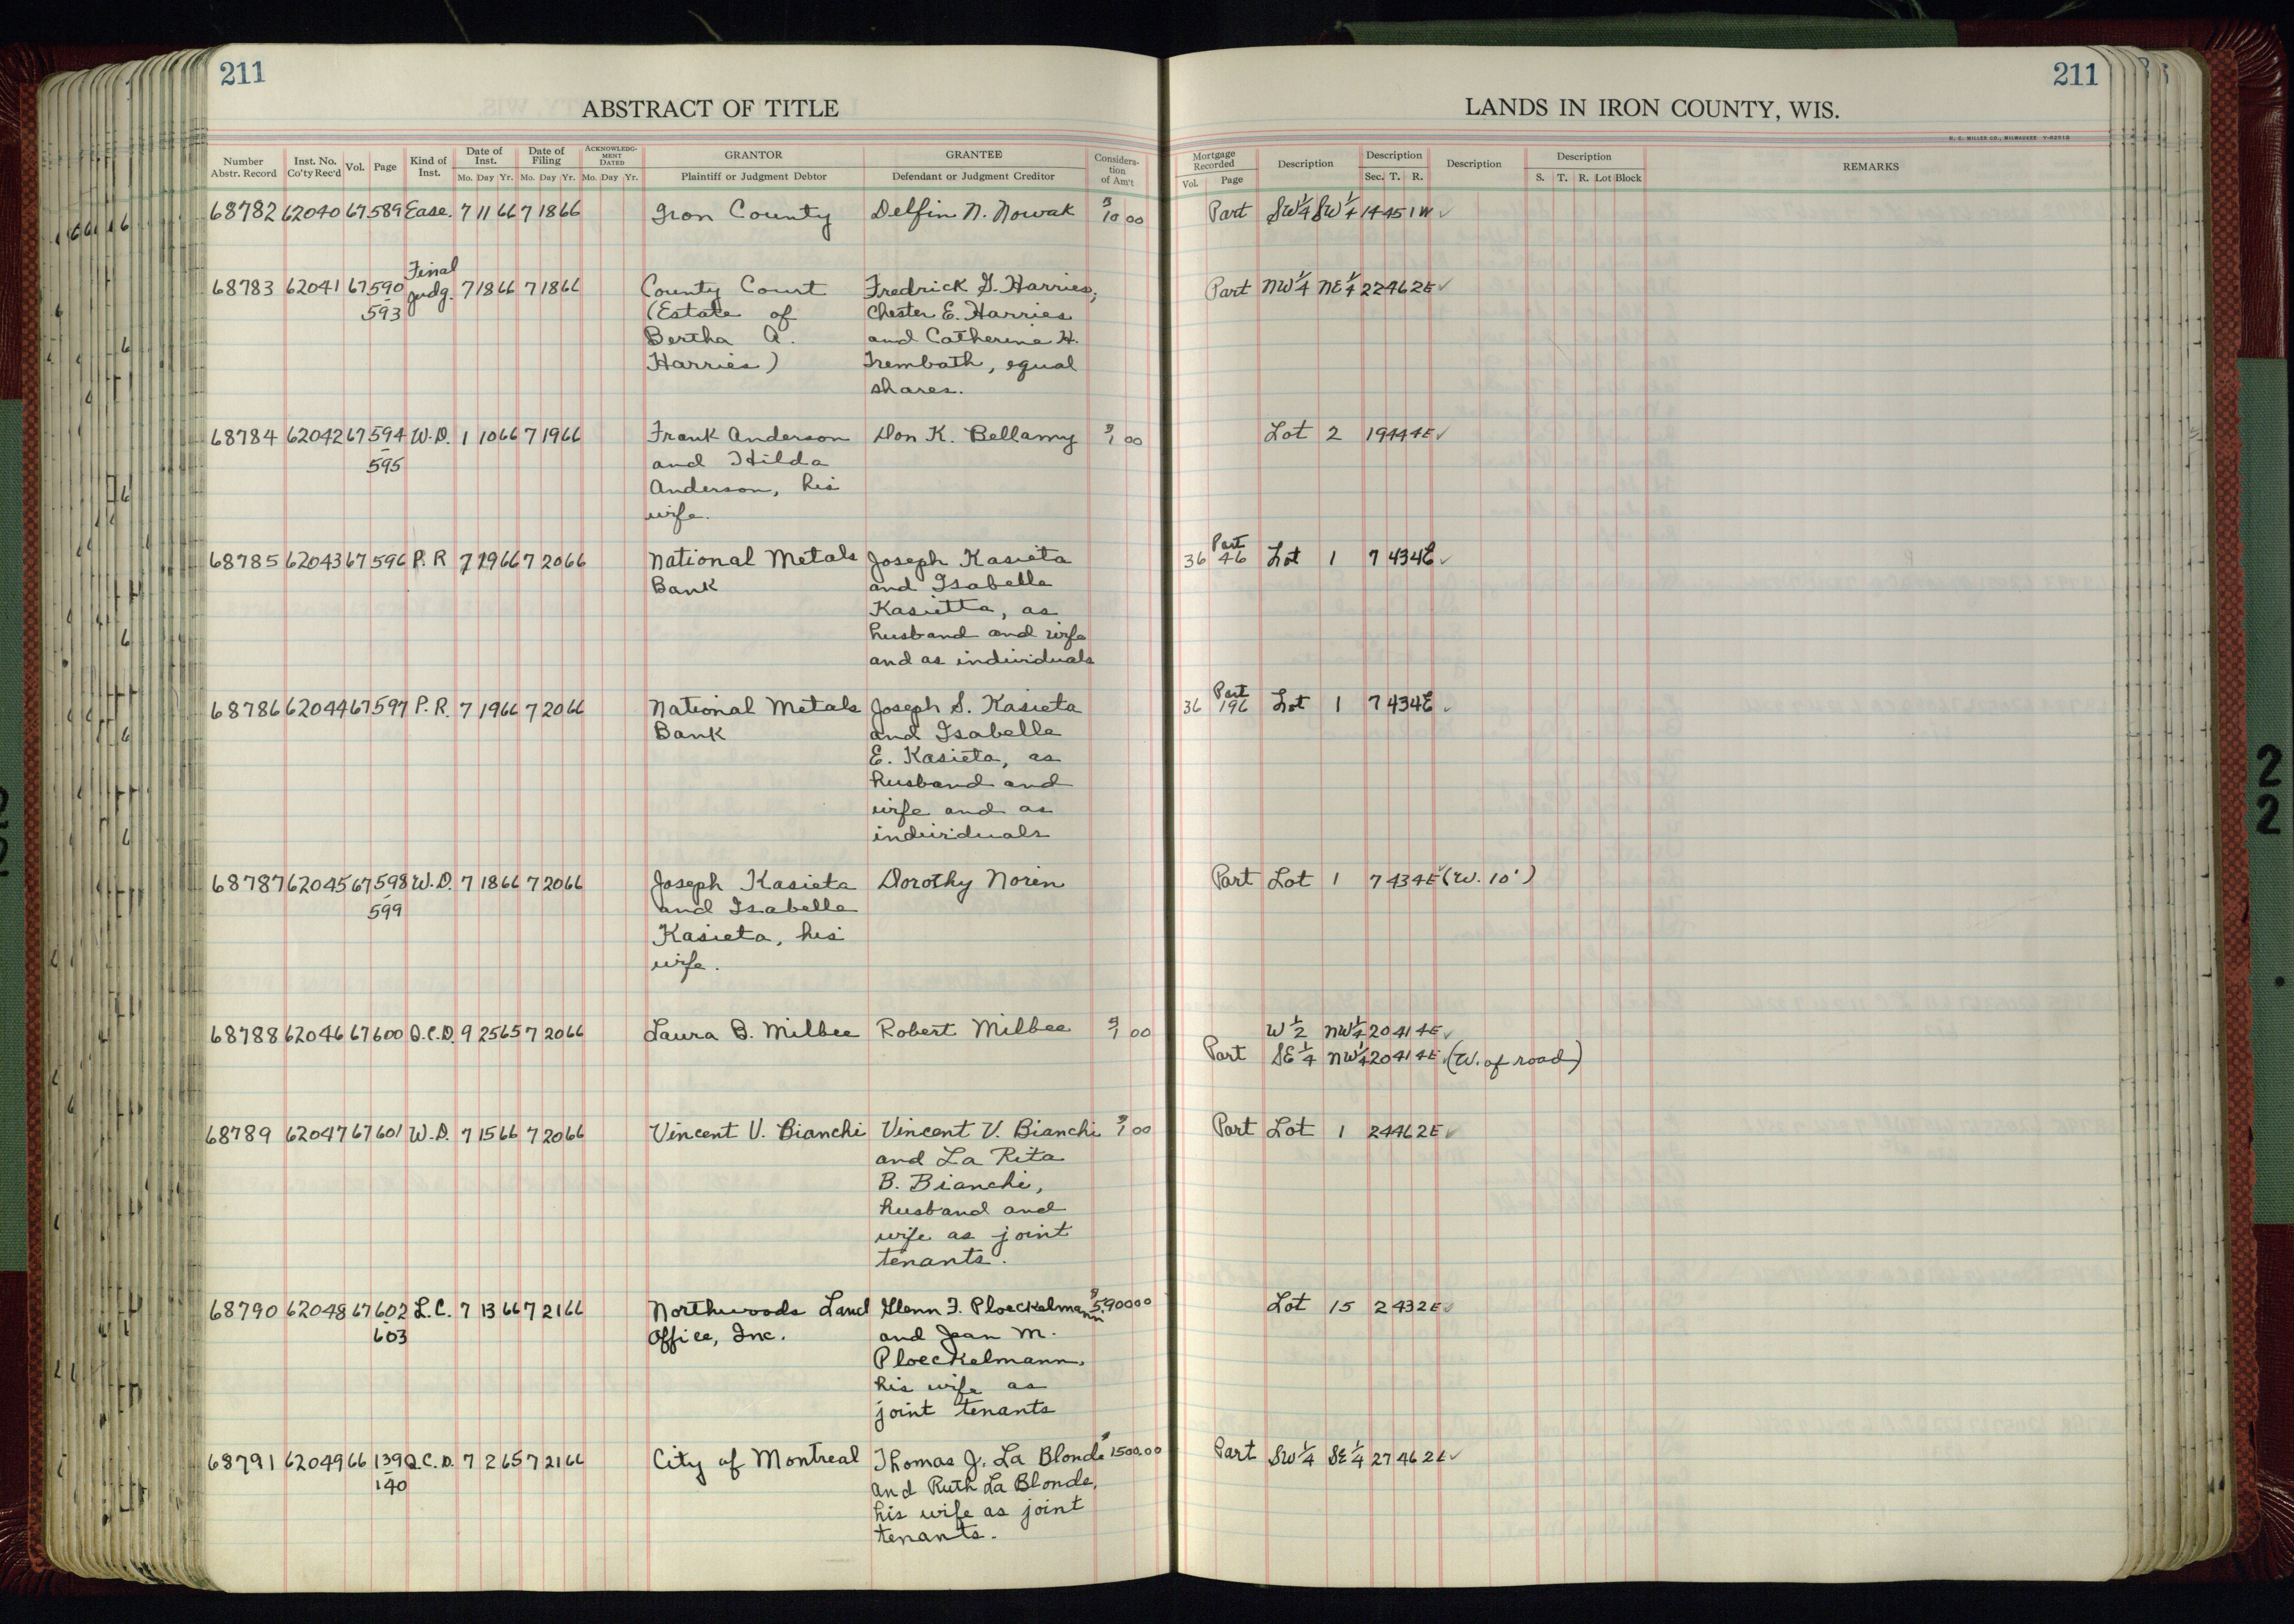 211
211
ABSTRACT OF TITLE
LANDS IN IRON COUNTY, WIS.
Number Abstr. Record Inst. No. Co'ty Rec'd Vol. Page Kind of Inst. Date of Inst. Mo. Day Yr. Date of Filing Mo. Day Yr. ACKNOWLEDG-MENT DATED Mo. Day Yr. GRANTOR Plaintiff or Judgment Debtor GRANTEE Defendant or Judgment Creditor Considera-tion of Am't
Mortgage Recorded Vol. Page Description Description Sec. T. R. Description Description S. T. R. Lot Block REMARKS
68782 62040 67 589 Ease. 7 11 66 7 18 66 Iron County Delfin N. Nowak $10 00 Part SW 1/4 SW 1/4 14 45 1W ✓
68783 62041 67 590 Final Judg. 7 18 66 7 18 66 County Court Fredrick G. Harries, Part NW 1/4 NE 1/4 22 46 2E ✓
-593 (Estate of Chester E. Harries
Bertha A. and Catherine H.
Harries) Trembath, equal
shares.
68784 62042 67 594 W.D. 1 10 66 7 19 66 Frank Anderson Don K. Bellamy $1 00 Lot 2 19 44 4E ✓
-595 and Hilda
Anderson, his
wife.
68785 62043 67 596 P.R 7 19 66 7 20 66 National Metals Joseph Kasieta 36 46 Part Lot 1 7 43 4E ✓
Bank and Isabella
Kasietta, as
husband and wife
and as individuals
68786 62044 67 597 P.R. 7 19 66 7 20 66 National Metals Joseph S. Kasieta 36 196 Part Lot 1 7 43 4E ✓
Bank and Isabella
E. Kasieta, as
husband and
wife and as
individuals
68787 62045 67 598 W.D. 7 18 66 7 20 66 Joseph Kasieta Dorothy Noren Part Lot 1 7 43 4E ✓ (W. 10')
-599 and Isabella
Kasieta, his
wife.
68788 62046 67 600 Q.C.D. 9 25 65 7 20 66 Laura B. Milbee Robert Milbee $1 00 W 1/2 NW 1/4 20 41 4E ✓
Part SE 1/4 NW 1/4 20 41 4E (W. of road)
68789 62047 67 601 W.D. 7 15 66 7 20 66 Vincent V. Bianchi Vincent V. Bianchi $1 00 Part Lot 1 24 46 2E ✓
and La Rita
B. Bianchi,
husband and
wife as joint
tenants.
68790 62048 67 602 L.C. 7 13 66 7 21 66 Northwoods Land Glenn F. Ploeckelmann $5,900 00 Lot 15 2 43 2E ✓
-603 Office, Inc. and Jean M.
Ploeckelmann,
his wife as
joint tenants
68791 62049 66 139 Q.C.D. 7 2 65 7 21 66 City of Montreal Thomas J. La Blonde $1500.00 Part SW 1/4 SE 1/4 27 46 2E ✓
-140 and Ruth La Blonde,
his wife as joint
tenants.
2
2